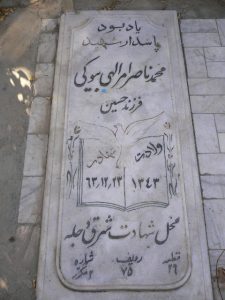 یادبود
پاسدار شهید
محمد ناصر امرالهی بیوکی
فرزند حسین
ولادت شهادت
۱۳۴۳ ۶۳,۱۲,۲۳
محل شهادت شرق دجله
قطعه ردیف شماره
۲۶ ۷۵